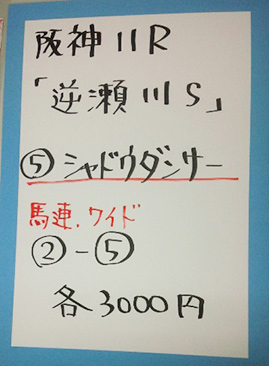 阪神11R
「逆瀬川S」
⑤シャドウダンサー
馬連.ワイド
②-⑤
各3000円